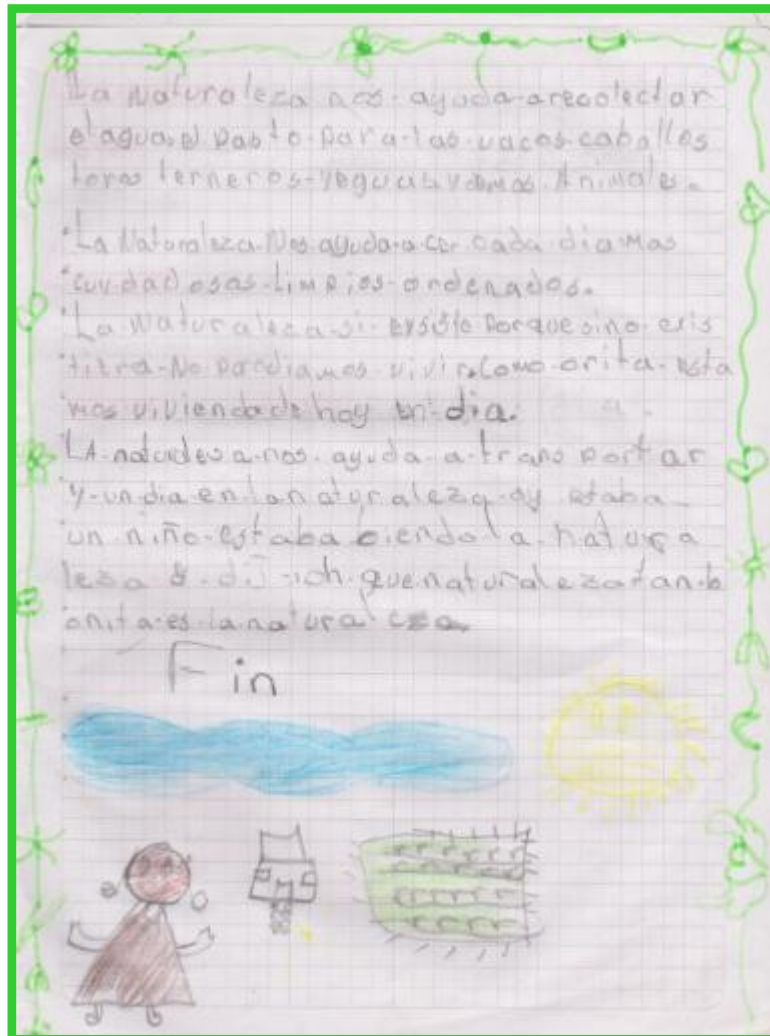 La Naturaleza nos ayuda arecolectar
el agua. el pasto para las vacas caballos
toros terneros yeguas y demas Animales.
La Naturaleza Nos ayuda a cer cada dia Mas
cuydadosas Limpios ordenados.
La Naturaleza si existe porque sino exis
tiera No podiamos vivir. como orita esta
mos viviendo de hoy en dia.
LA naturaleza nos ayuda a trans portar
Y un dia en la naturaleza ay estaba
un niño estaba biendo la natura
leza dijo que naturaleza tan b
onita es la naturaleza
Fin